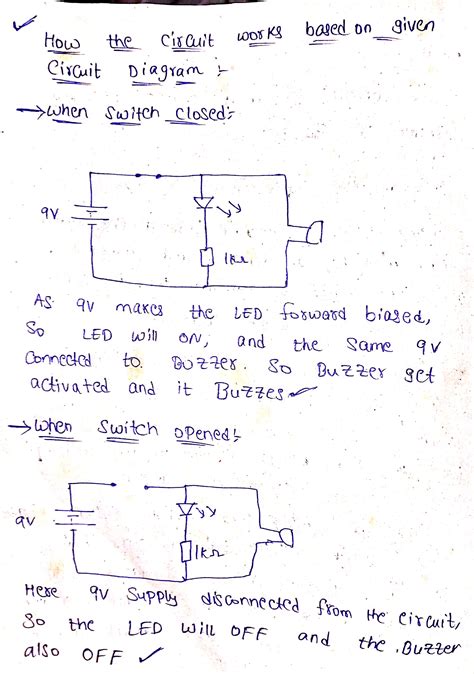 How the circuit works based on given
Circuit Diagram :-
→ when switch closed:-
9V
1kΩ
As 9V makes the LED forward biased,
So LED will ON, and the same 9V
Connected to Buzzer. So Buzzer get
activated and it Buzzes ✓
→ when switch opened:-
9V
1kΩ
Here 9V supply disconnected from the circuit,
So the LED will OFF and the Buzzer
also OFF ✓